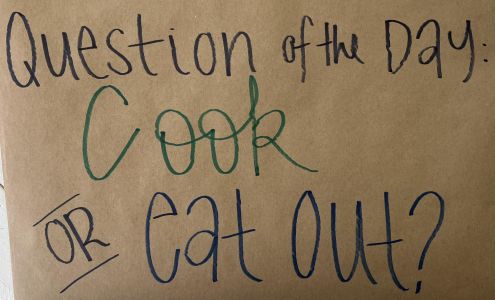 Question of the Day:
Cook
OR eat Out?